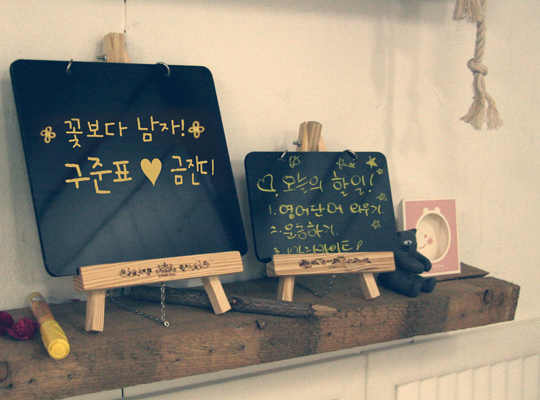 꽃보다 남자!
구준표 ♥ 금잔디
♡ 오늘의 할일!
1. 영어단어 외우기
2. 운동하기
3.